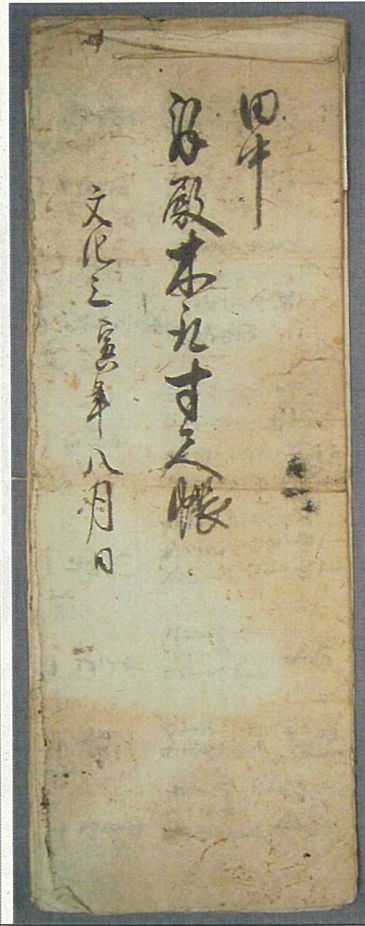 田中
拝殿木取寸尺帳
文化三寅年八月日